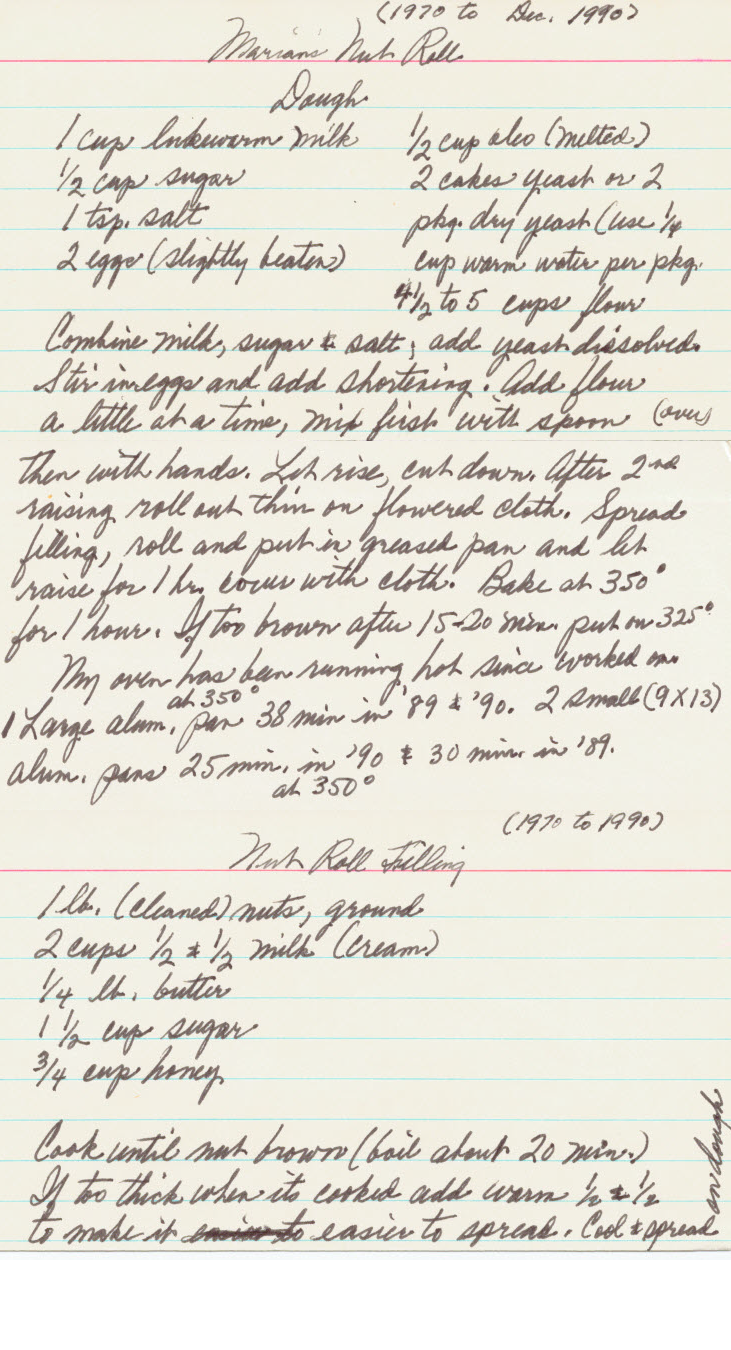 (1970 to Dec. 1990)
Marians Nut Roll
Dough
1 cup lukewarm milk
1/2 cup sugar
1 tsp. salt
2 eggs (slightly beaten)
1/2 cup oleo (melted)
2 cakes yeast or 2
pkg. dry yeast (use 1/4
cup warm water per pkg.
4 1/2 to 5 cups flour
Combine milk, sugar & salt; add yeast dissolved.
Stir in eggs and add shortening. Add flour
a little at a time, mix first with spoon (over)
then with hands. Let rise, cut down. After 2nd
raising roll out thin on flowered cloth. Spread
filling, roll and put in greased pan and let
raise for 1 hr. cover with cloth. Bake at 350°
for 1 hour. If too brown after 15-20 min. put on 325°
My oven has been running hot since worked on.
at 350°
1 Large alum. pan 38 min in '89 & '90. 2 small (9X13)
alum. pans 25 min. in '90 & 30 min. in '89.
at 350°
(1970 to 1990)
Nut Roll Filling
1 lb. (cleaned) nuts, ground
2 cups 1/2 & 1/2 milk (cream)
1/4 lb. butter
1 1/2 cup sugar
3/4 cup honey
Cook until nut brown (boil about 20 min.)
If too thick when its cooked add warm 1/2 & 1/2
to make it easier to easier to spread. Cool & spread
on dough